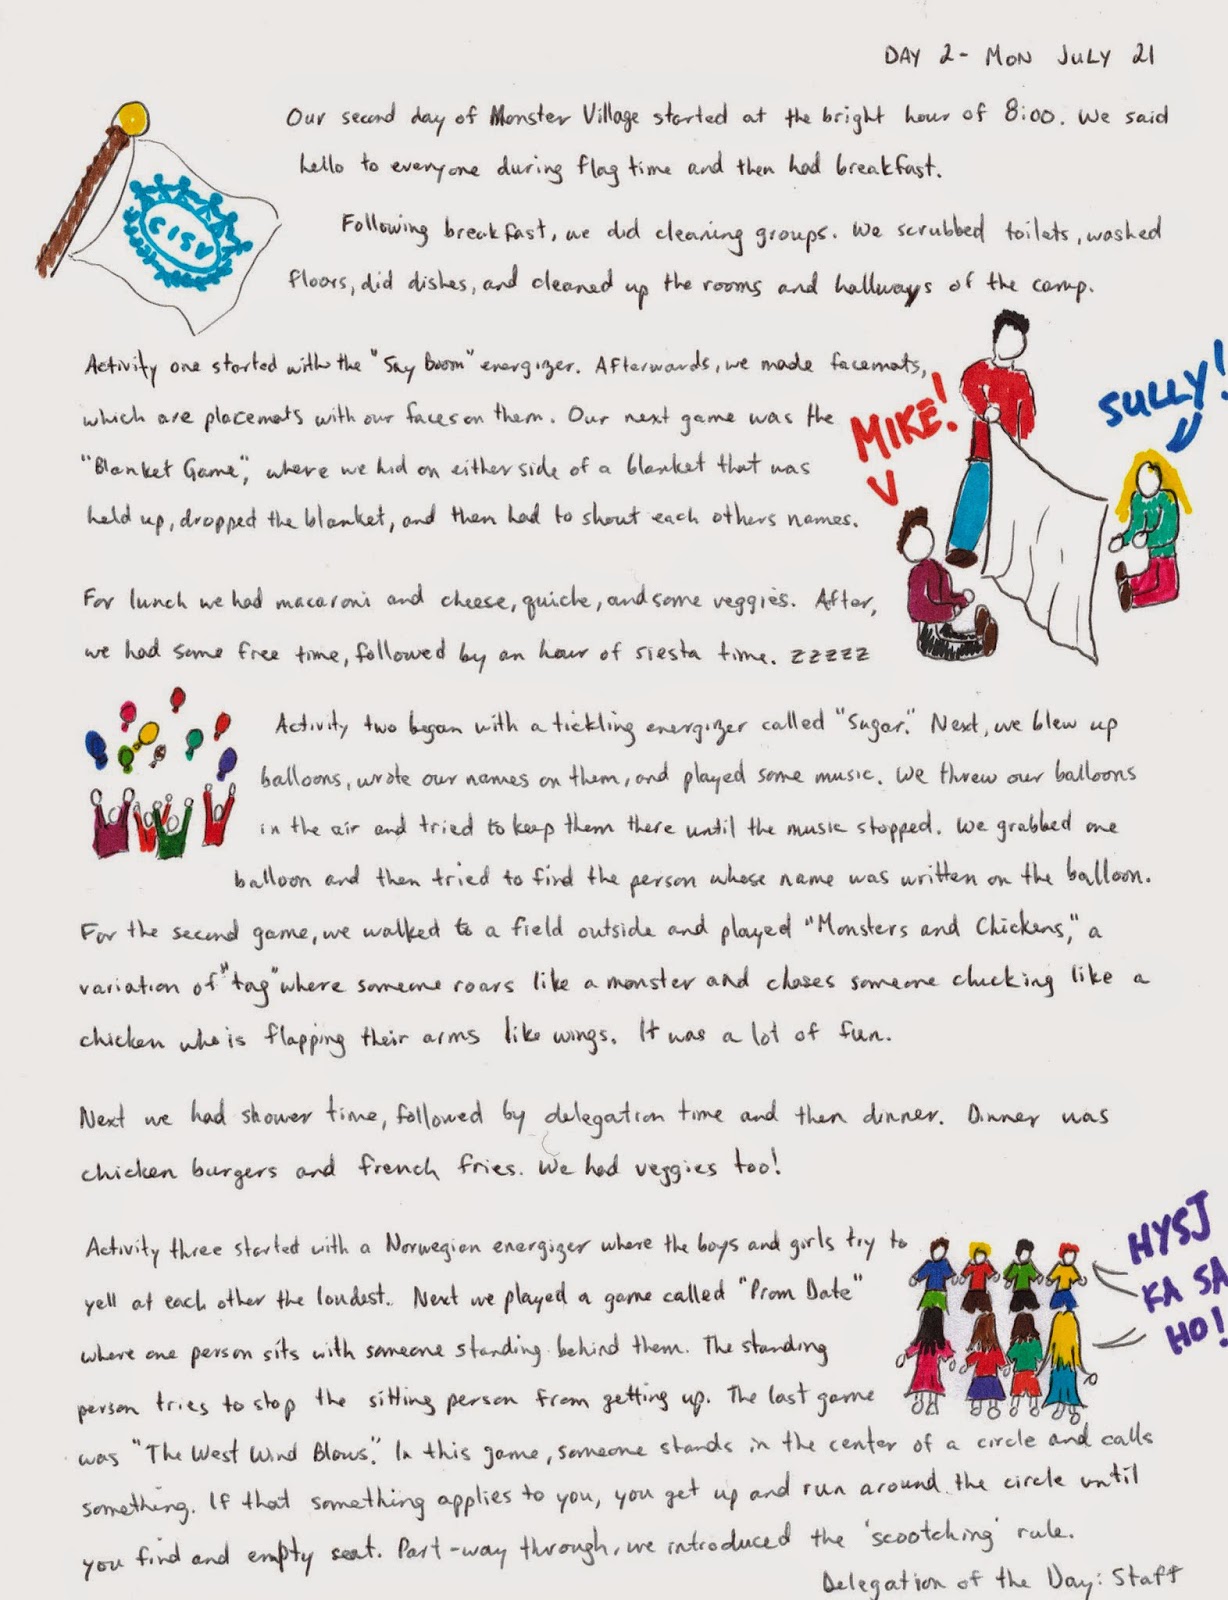 DAY 2 - MON JULY 21
Our second day of Monster Village started at the bright hour of 8:00. We said
hello to everyone during flag time and then had breakfast.
CISV
Following breakfast, we did cleaning groups. We scrubbed toilets, washed
floors, did dishes, and cleaned up the rooms and hallways of the camp.
Activity one started with the "Say Boom" energizer. Afterwards, we made facemats,
which are placemats with our faces on them. Our next game was the
"Blanket Game", where we hid on either side of a blanket that was
held up, dropped the blanket, and then had to shout each others names.
MIKE!
SULLY!
For lunch we had macaroni and cheese, quiche, and some veggies. After,
we had some free time, followed by an hour of siesta time. zzzzz
Activity two began with a tickling energizer called "Sugar." Next, we blew up
balloons, wrote our names on them, and played some music. We threw our balloons
in the air and tried to keep them there until the music stopped. We grabbed one
balloon and then tried to find the person whose name was written on the balloon.
For the second game, we walked to a field outside and played "Monsters and Chickens," a
variation of "tag" where someone roars like a monster and chases someone clucking like a
chicken who is flapping their arms like wings. It was a lot of fun.
Next we had shower time, followed by delegation time and then dinner. Dinner was
chicken burgers and french fries. We had veggies too!
Activity three started with a Norwegian energizer where the boys and girls try to
yell at each other the loudest. Next we played a game called "Prom Date"
where one person sits with someone standing behind them. The standing
person tries to stop the sitting person from getting up. The last game
was "The West Wind Blows." In this game, someone stands in the center of a circle and calls
something. If that something applies to you, you get up and run around the circle until
you find and empty seat. Part-way through, we introduced the 'scootching' rule.
HYSJ
KA SA
HO!
Delegation of the Day: Staff